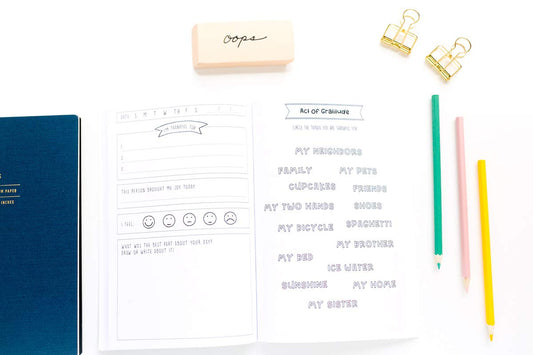 oops
DATE: S M T W TH F S
I'M THANKFUL FOR
1.
2.
3.
THIS PERSON BROUGHT ME JOY TODAY
I FEEL:
WHAT WAS THE BEST PART ABOUT YOUR DAY?
DRAW OR WRITE ABOUT IT!
Act Of Gratitude
CIRCLE THE THINGS YOU ARE THANKFUL FOR!
MY NEIGHBORS
FAMILY MY PETS
CUPCAKES FRIENDS
MY TWO HANDS SHOES
MY BICYCLE SPAGHETTI
MY BROTHER
MY BED
ICE WATER
SUNSHINE MY HOME
MY SISTER
PAPER
INCHES